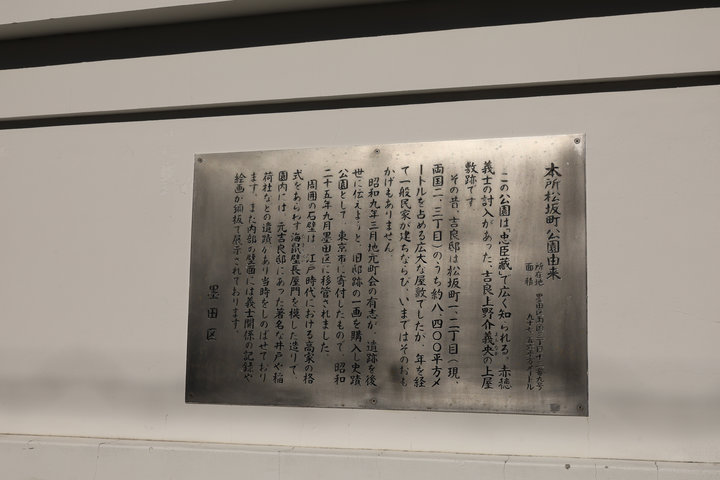 本所松坂町公園由来
所在地　墨田区両国三丁目十三番九号
面　積
この公園は「忠臣蔵」で広く知られる、赤穂
義士の討入があった、吉良上野介義央の上屋
敷跡です。
その昔、吉良邸は松坂町一、二丁目（現、
両国二、三丁目）のうち約八、四〇〇平方メ
ートルを占める広大な屋敷でしたが、年を経
て一般民家が建ちならび、いまではそのおも
かげもありません。
昭和九年三月地元町会の有志が、遺跡を後
世に伝えようと、旧邸跡の一画を購入し史蹟
公園として、東京市に寄付したもので、昭和
二十五年九月墨田区に移管されました。
周囲の石壁は、江戸時代における高家の格
式をあらわす海鼠壁長屋門を模した造りで、
園内には、元吉良邸にあった著名な井戸や稲
荷社などの遺蹟があり当時をしのばせており
ます。また内部の壁面には義士関係の記録や
絵画が銅板で展示されております。
墨田区